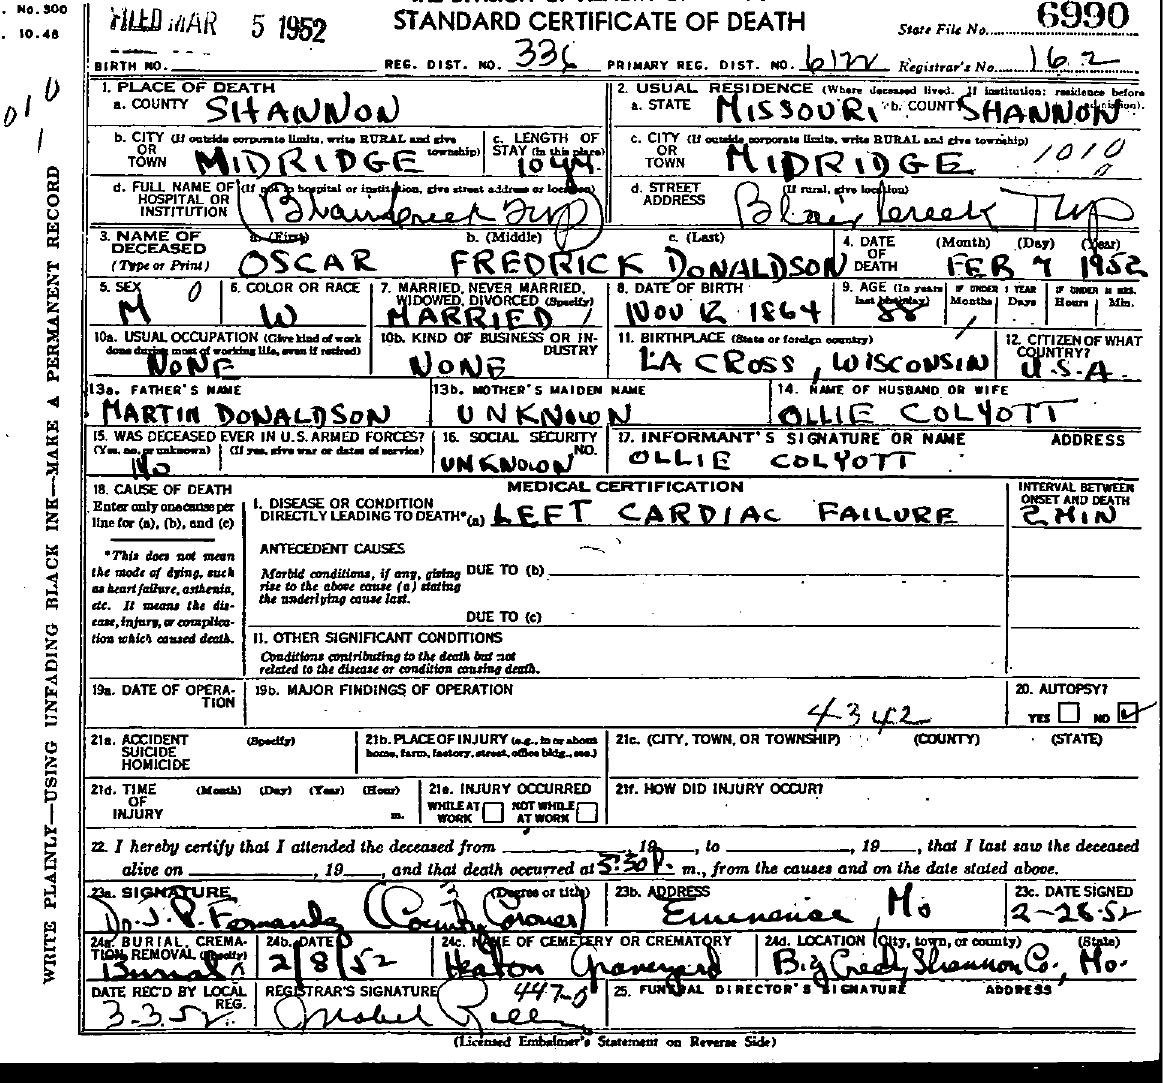 No. 300
10.48
FILED MAR 5 1952
STANDARD CERTIFICATE OF DEATH
State File No. 6990
BIRTH NO. REG. DIST. NO. 336 PRIMARY REG. DIST. NO. 6122 Registrar's No. 162
1. PLACE OF DEATH
a. COUNTY SHANNON
2. USUAL RESIDENCE (Where deceased lived. If institution: residence before admission).
a. STATE MISSOURI b. COUNTY SHANNON
b. CITY OR TOWN (If outside corporate limits, write RURAL and give township) MIDRIDGE
c. LENGTH OF STAY (in this place)
c. CITY OR TOWN (If outside corporate limits, write RURAL and give township) MIDRIDGE 1010
d. FULL NAME OF HOSPITAL OR INSTITUTION (If not in hospital or institution, give street address or location) Twp
d. STREET ADDRESS (If rural, give location) Blair Creek Twp
3. NAME OF DECEASED (Type or Print)
a. (First) OSCAR b. (Middle) FREDRICK c. (Last) DONALDSON
4. DATE OF DEATH (Month) (Day) (Year) FEB 7 1952
5. SEX M 0
6. COLOR OR RACE W
7. MARRIED, NEVER MARRIED, WIDOWED, DIVORCED (Specify) MARRIED 1
8. DATE OF BIRTH NOV 12 1864
9. AGE (In years last birthday) 88 IF UNDER 1 YEAR Months Days IF UNDER 24 HRS. Hours Min.
10a. USUAL OCCUPATION (Give kind of work done during most of working life, even if retired) NONE
10b. KIND OF BUSINESS OR INDUSTRY NONE
11. BIRTHPLACE (State or foreign country) LA CROSS, WISCONSIN
12. CITIZEN OF WHAT COUNTRY? U.S.A.
13a. FATHER'S NAME MARTIN DONALDSON
13b. MOTHER'S MAIDEN NAME UNKNOWN
14. NAME OF HUSBAND OR WIFE OLLIE COLYOTT
15. WAS DECEASED EVER IN U.S. ARMED FORCES? (Yes, no, or unknown) (If yes, give war or dates of service) No
16. SOCIAL SECURITY NO. UNKNOWN
17. INFORMANT'S SIGNATURE OR NAME ADDRESS
OLLIE COLYOTT
18. CAUSE OF DEATH
Enter only one cause per line for (a), (b), and (c)
*This does not mean the mode of dying, such as heart failure, asthenia, etc. It means the disease, injury, or complication which caused death.
MEDICAL CERTIFICATION
INTERVAL BETWEEN ONSET AND DEATH
I. DISEASE OR CONDITION DIRECTLY LEADING TO DEATH* (a) LEFT CARDIAC FAILURE 2 MIN
ANTECEDENT CAUSES
Morbid conditions, if any, giving rise to the above cause (a) stating the underlying cause last.
DUE TO (b)
DUE TO (c)
II. OTHER SIGNIFICANT CONDITIONS
Conditions contributing to the death but not related to the disease or condition causing death.
19a. DATE OF OPERATION
19b. MAJOR FINDINGS OF OPERATION
4342
20. AUTOPSY? YES NO
21a. ACCIDENT SUICIDE HOMICIDE (Specify)
21b. PLACE OF INJURY (e.g., in or about home, farm, factory, street, office bldg., etc.)
21c. (CITY, TOWN, OR TOWNSHIP) (COUNTY) (STATE)
21d. TIME OF INJURY (Month) (Day) (Year) (Hour) m.
21e. INJURY OCCURRED WHILE AT WORK NOT WHILE AT WORK
21f. HOW DID INJURY OCCUR?
22. I hereby certify that I attended the deceased from , 19 , to , 19 , that I last saw the deceased
alive on , 19 , and that death occurred at 5:30 P. m., from the causes and on the date stated above.
23a. SIGNATURE (Degree or title) Dr. J. P. Fernandez (County Coroner)
23b. ADDRESS Eminence, Mo
23c. DATE SIGNED 2-28-52
24a. BURIAL, CREMATION, REMOVAL (Specify) Burial
24b. DATE 2/8/52
24c. NAME OF CEMETERY OR CREMATORY Heaton Graveyard
24d. LOCATION (City, town, or county) (State) Big Shannon Co., Mo.
DATE REC'D BY LOCAL REG. 3-3-52
REGISTRAR'S SIGNATURE 447-0 Mabel
25. FUNERAL DIRECTOR'S SIGNATURE ADDRESS
(Licensed Embalmer's Statement on Reverse Side)
WRITE PLAINLY—USING UNFADING BLACK INK—MAKE A PERMANENT RECORD